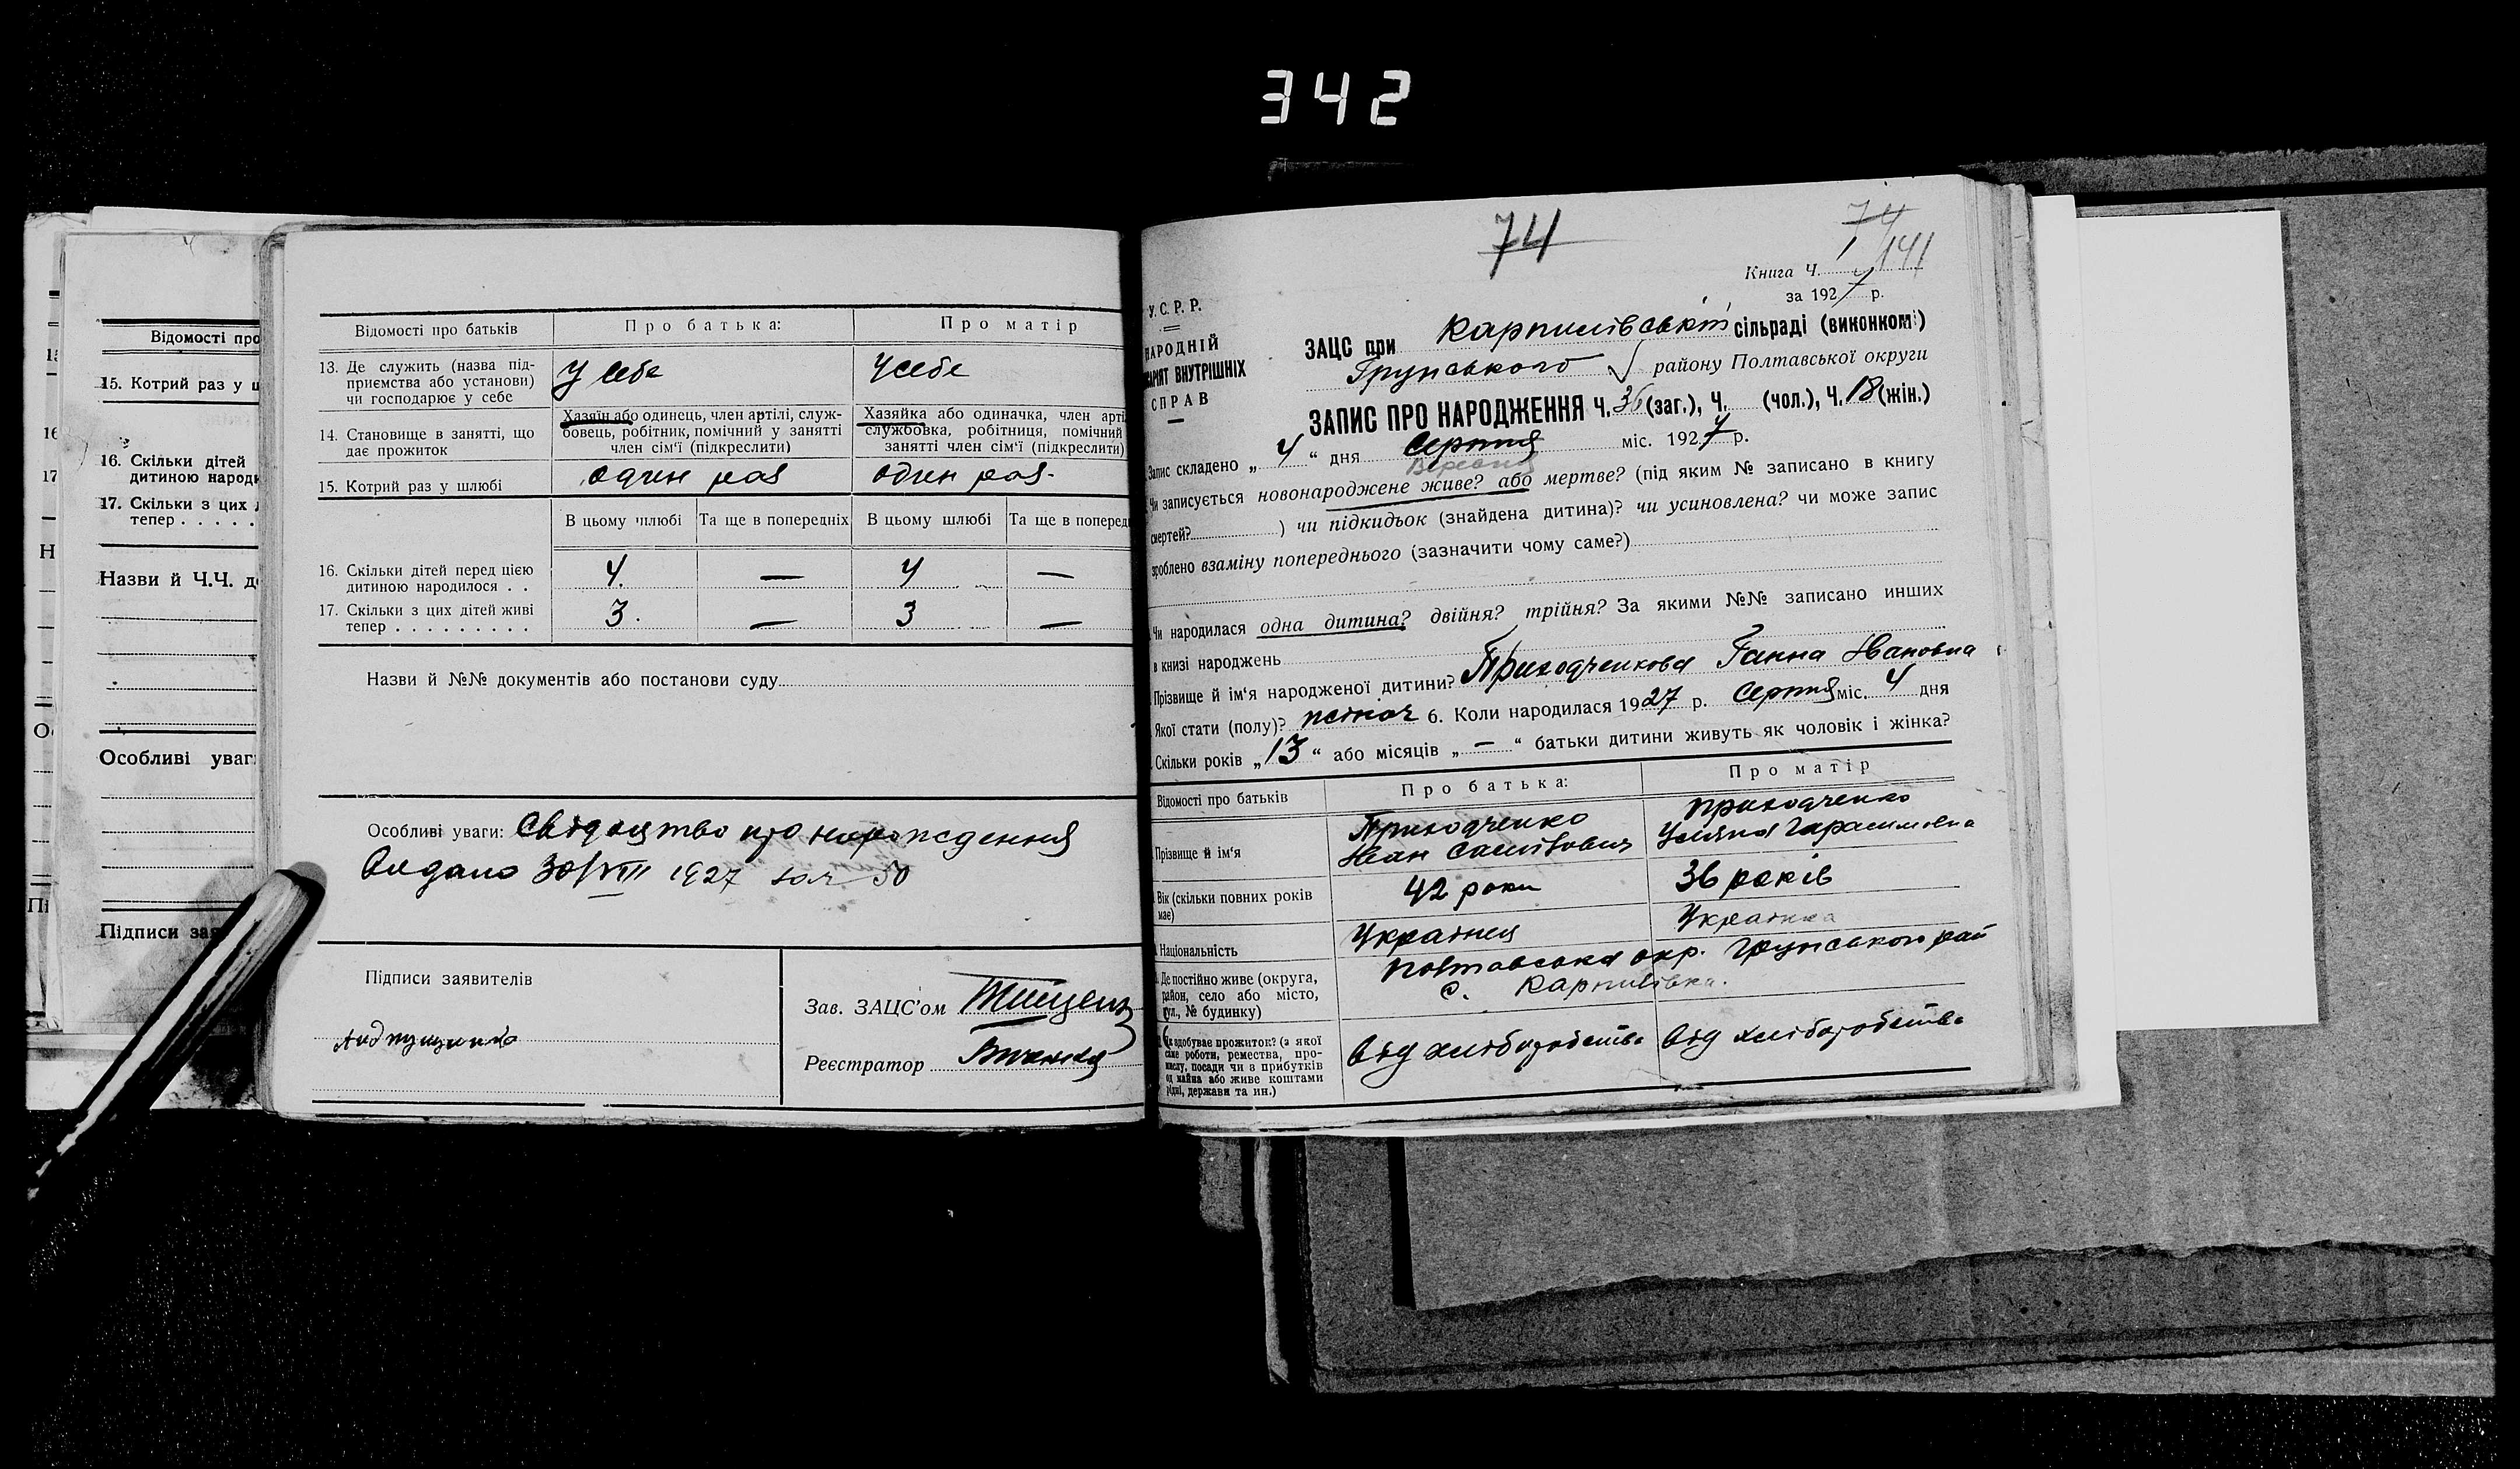 342
Відомості про
15. Котрий раз у ш
16. Скільки дітей
дитиною народи
17. Скільки з цих
тепер . . . . .
Назви й Ч.Ч. д
Особливі уваг
Підписи зая
Відомості про батьків
Про батька:
Про матір
13. Де служить (назва під-
приємства або установи)
чи господарює у себе
У себе
У себе
14. Становище в занятті, що
дає прожиток
Хазяїн або одинець, член артілі, служ-
бовець, робітник, помічний у занятті
член сім'ї (підкреслити)
Хазяйка або одиначка, член арті
службовка, робітниця, помічний
занятті член сім'ї (підкреслити)
15. Котрий раз у шлюбі
один раз
один раз.
В цьому шлюбі
Та ще в попередніх
В цьому шлюбі
Та ще в поперед
16. Скільки дітей перед цією
дитиною народилося . .
4. — 4 —
17. Скільки з цих дітей живі
тепер . . . . . . . . .
3. — 3 —
Назви й №№ документів або постанови суду
Особливі уваги: Свідоцтво про народження
Видано 30/VIII 1927 50
Підписи заявителів
Зав. ЗАЦС'ом
Реєстратор
74
74
141
Книга Ч. 1
за 1927 р.
У.С.Р.Р.
НАРОДНІЙ
АРІЯТ ВНУТРІШНІХ
СПРАВ
ЗАЦС при Карпилівській сільраді (виконкомі)
Грунського району Полтавської округи
ЗАПИС ПРО НАРОДЖЕННЯ Ч. 36 (заг.), Ч. (чол.), Ч. 18 (жін.)
Запис складено „ 4 “ дня Серпня міс. 1927 р.
Вересня
Чи записується новонароджене живе? або мертве? (під яким № записано в книгу
смертей? ) чи підкидьок (знайдена дитина)? чи усиновлена? чи може запис
зроблено взаміну попереднього (зазначити чому саме?)
Чи народилася одна дитина? двійня? трійня? За якими №№ записано инших
в книзі народжень
Прізвище й ім'я народженої дитини? Приходченкова Ганна Івановна
Якої стати (полу)? жіноч 6. Коли народилася 1927 р. Серпня міс. 4 дня
Скільки років „ 13 “ або місяців „ — “ батьки дитини живуть як чоловік і жінка?
Відомості про батьків
Про батька:
Про матір
Прізвище й ім'я
Приходченко
Іван Савитович
Приходченко
Уляна Гарасимовна
Вік (скільки повних років
має)
42 роки
36 років
Національність
Українец
Українка
Де постійно живе (округа,
район, село або місто,
вул., № будинку)
Полтавська окр. Грунського рай
с. Карпилівка.
Як здобуває прожиток? (з якої
саме роботи, ремества, про-
мислу, посади чи з прибутків
од майна або живе коштами
рідні, держави та ин.)
від хліборобства
від хліборобства